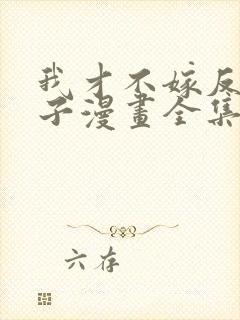 我才不嫁反
子漫畫全集
六存